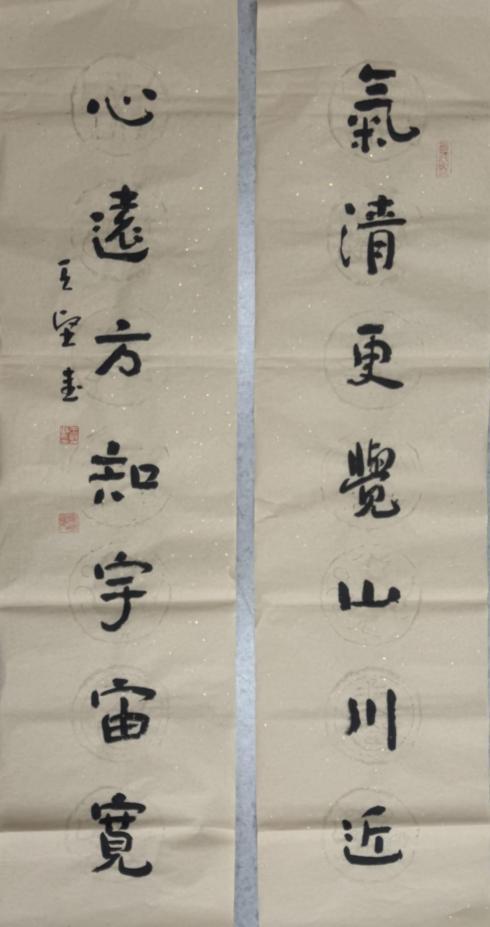 氣清更覺山川近
心遠方知宇宙寬